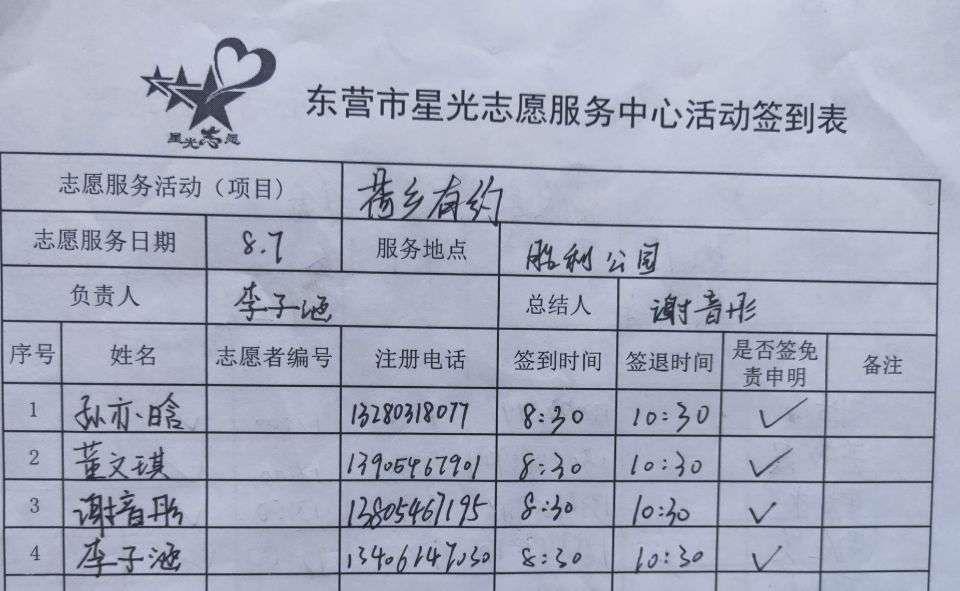 星光志愿
东营市星光志愿服务中心活动签到表
志愿服务活动（项目） 荷乡有约
志愿服务日期 8.7 服务地点 胜利公园
负责人 李子涵 总结人 谢音彤
序号 姓名 志愿者编号 注册电话 签到时间 签退时间 是否签免责申明 备注
1 孙亦晗 13280318077 8:30 10:30 ✓
2 董文琪 13905467901 8:30 10:30 ✓
3 谢音彤 13805467195 8:30 10:30 ✓
4 李子涵 13406147030 8:30 10:30 ✓